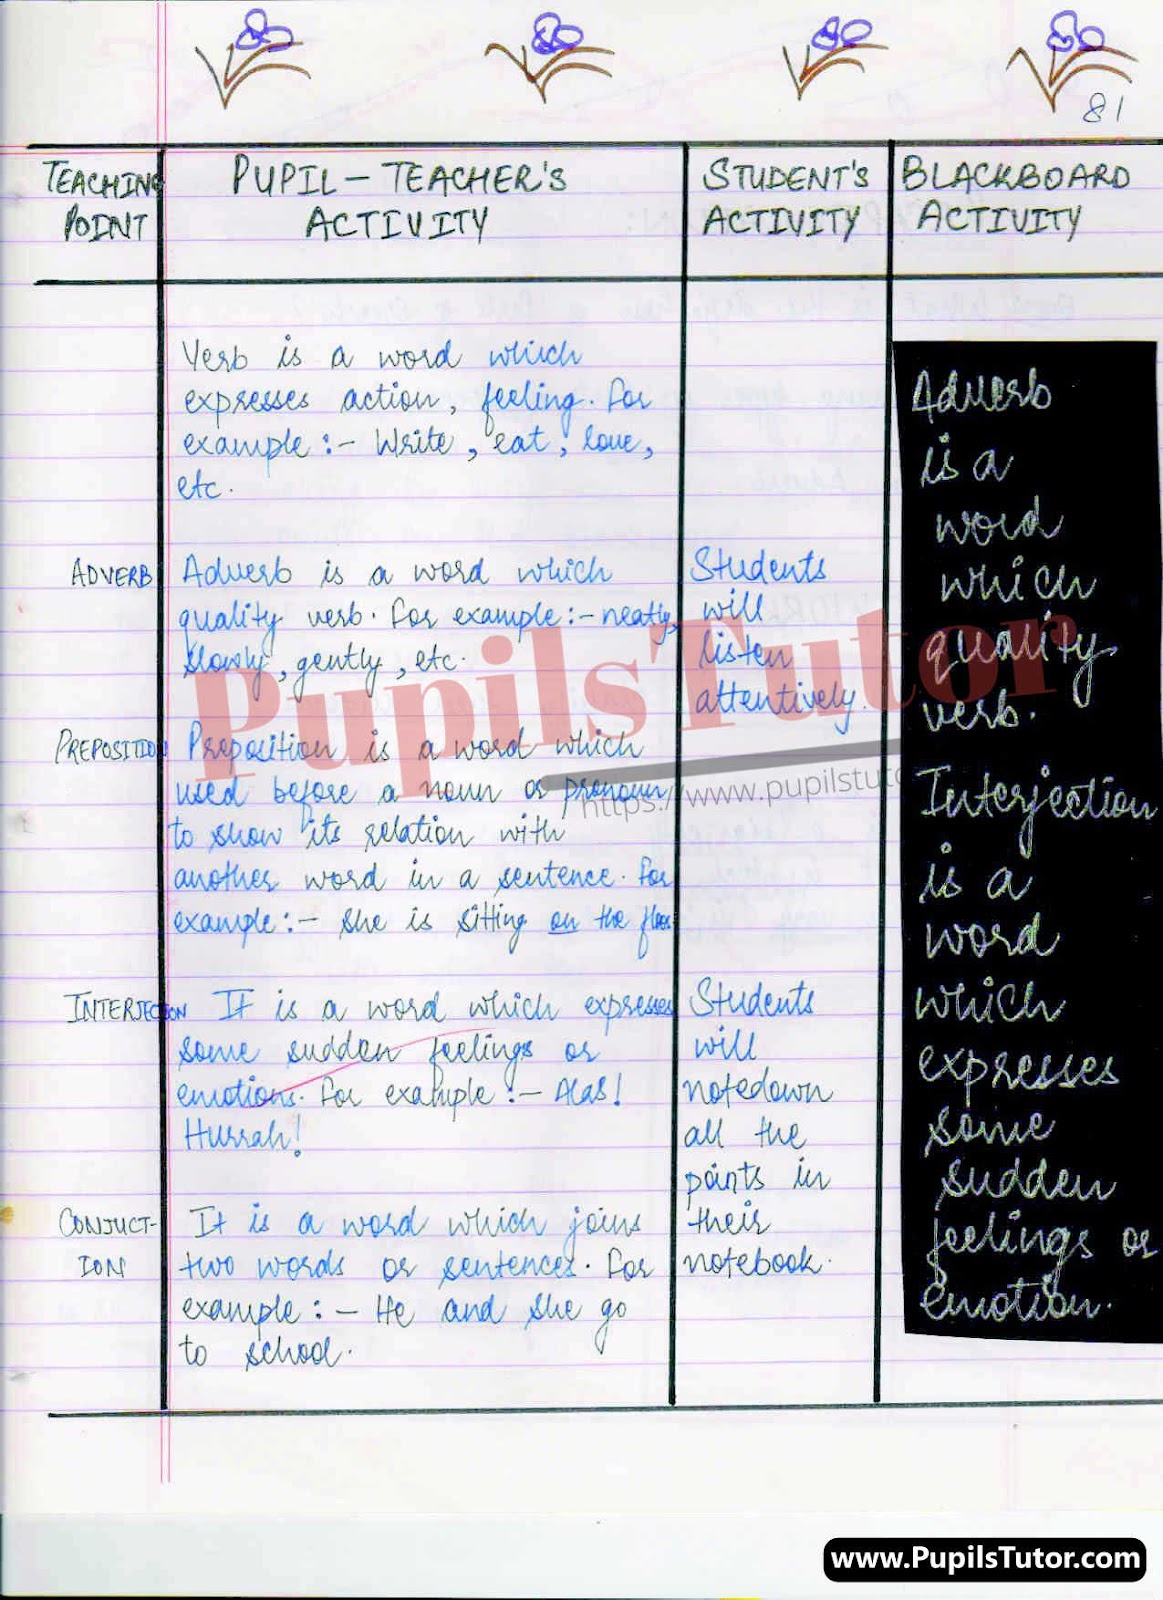 81
TEACHING POINT
PUPIL - TEACHER'S ACTIVITY
STUDENT'S ACTIVITY
BLACKBOARD ACTIVITY
Verb is a word which
expresses action, feeling. For
example :- Write, eat, love,
etc.
ADVERB
Adverb is a word which
quality verb. For example :- neatly,
slowly, gently, etc.
Students
will
listen
attentively.
PREPOSITION
Preposition is a word which
used before a noun or pronoun
to show its relation with
another word in a sentence. For
example :- She is sitting on the floor
INTERJECTION
It is a word which expresses
some sudden feelings or
emotions. For example :- Alas!
Hurrah!
Students
will
notedown
all the
points in
their
notebook.
CONJUCT-
ION
It is a word which joins
two words or sentences. For
example : - He and she go
to school.
Adverb
is a
word
which
quality
verb.
Interjection
is a
word
which
expresses
some
sudden
feelings or
emotion.
PupilsTutor
https://www.pupilstut
www.PupilsTutor.com